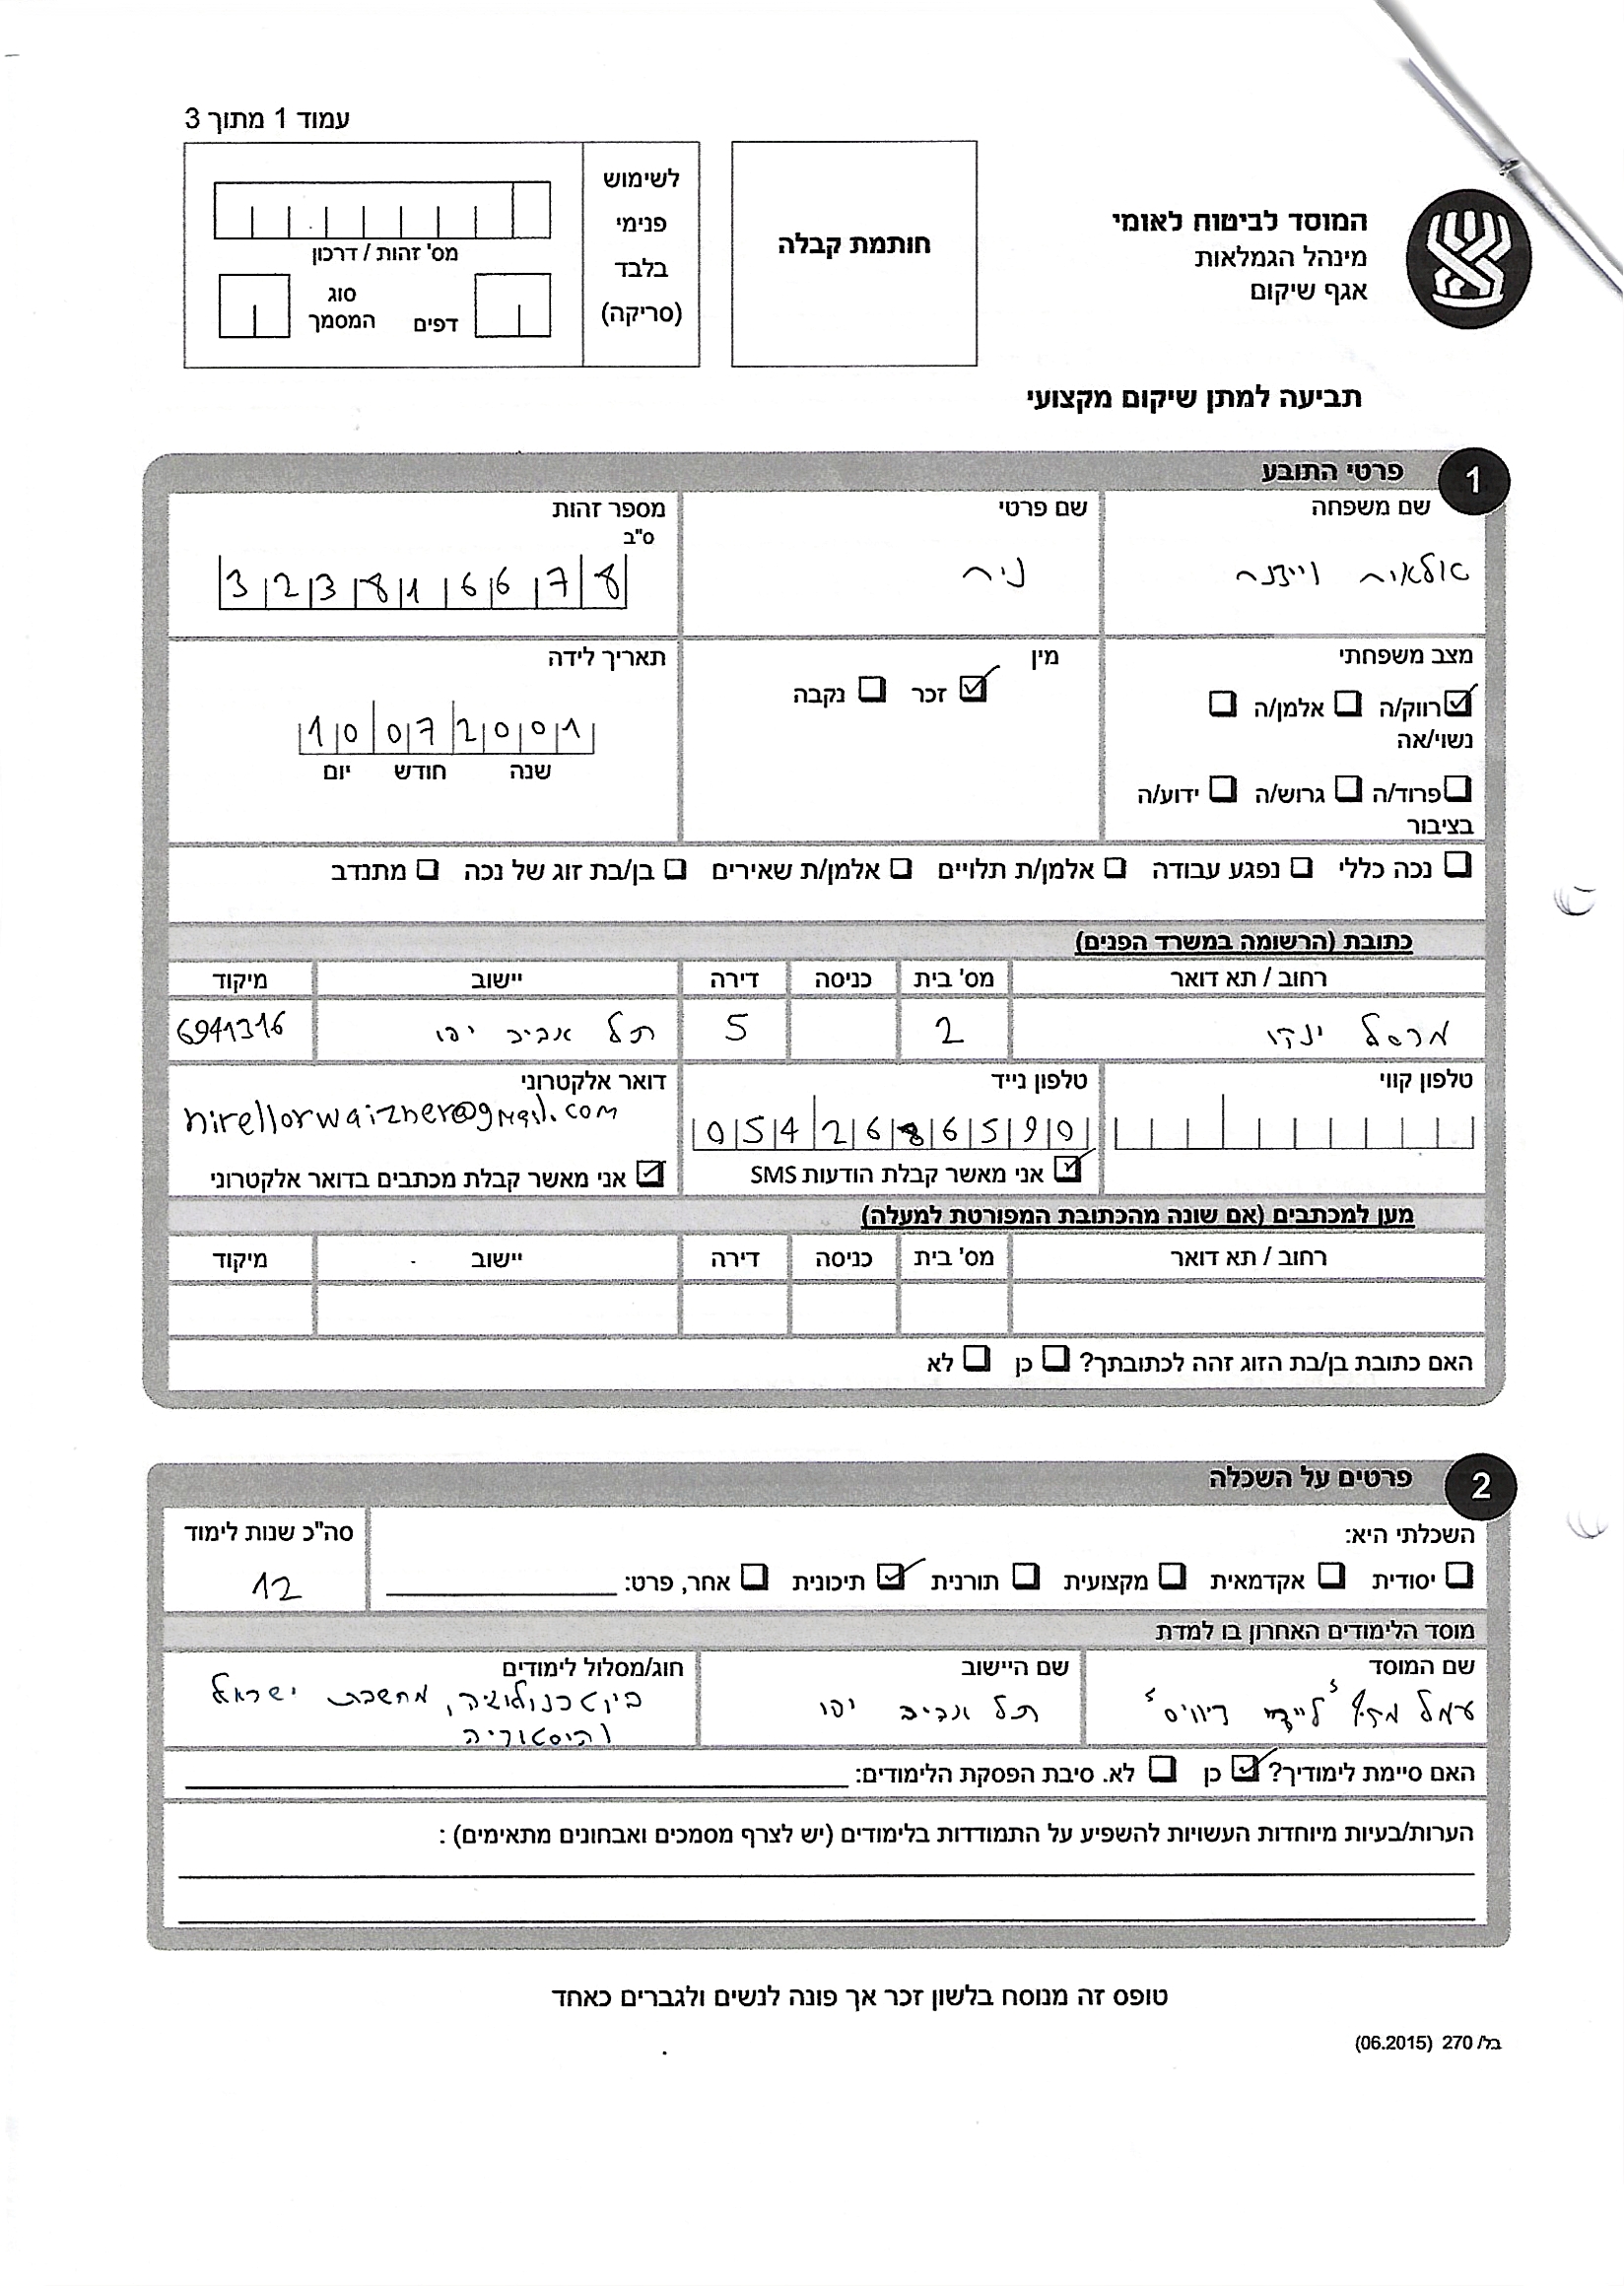 עמוד 1 מתוך 3
המוסד לביטוח לאומי
מינהל הגמלאות
אגף שיקום
חותמת קבלה
לשימוש
פנימי
בלבד
(סריקה)
מס' זהות / דרכון
סוג
המסמך
דפים
תביעה למתן שיקום מקצועי
1 פרטי התובע
שם משפחה שם פרטי מספר זהות
ס"ב
ניר 3 2 3 8 1 6 6 7 8
מצב משפחתי מין תאריך לידה
רווק/ה אלמן/ה
נשוי/אה
זכר נקבה
1 0 0 7 2 0 0 1
יום חודש שנה
פרוד/ה גרוש/ה ידוע/ה
בציבור
נכה כללי נפגע עבודה אלמן/ת תלויים אלמן/ת שאירים בן/בת זוג של נכה מתנדב
כתובת (הרשומה במשרד הפנים)
רחוב / תא דואר מס' בית כניסה דירה יישוב מיקוד
מרסל ינקו 2 5 תל אביב יפו 6941316
טלפון קווי טלפון נייד דואר אלקטרוני
0 5 4 2 6 8 6 5 9 0 nirellorwaizner@gmail.com
אני מאשר קבלת הודעות SMS אני מאשר קבלת מכתבים בדואר אלקטרוני
מען למכתבים (אם שונה מהכתובת המפורטת למעלה)
רחוב / תא דואר מס' בית כניסה דירה יישוב מיקוד
האם כתובת בן/בת הזוג זהה לכתובתך? כן לא
2 פרטים על השכלה
השכלתי היא: סה"כ שנות לימוד
יסודית אקדמאית מקצועית תורנית תיכונית אחר, פרט: 12
מוסד הלימודים האחרון בו למדת
שם המוסד שם היישוב חוג/מסלול לימודים
עמל ליידי דיוויס תל אביב יפו ביוטכנולוגיה, מחשבת ישראל
והיסטוריה
האם סיימת לימודיך? כן לא. סיבת הפסקת הלימודים:
הערות/בעיות מיוחדות העשויות להשפיע על התמודדות בלימודים (יש לצרף מסמכים ואבחונים מתאימים) :
טופס זה מנוסח בלשון זכר אך פונה לנשים ולגברים כאחד
בל/ 270 (06.2015)